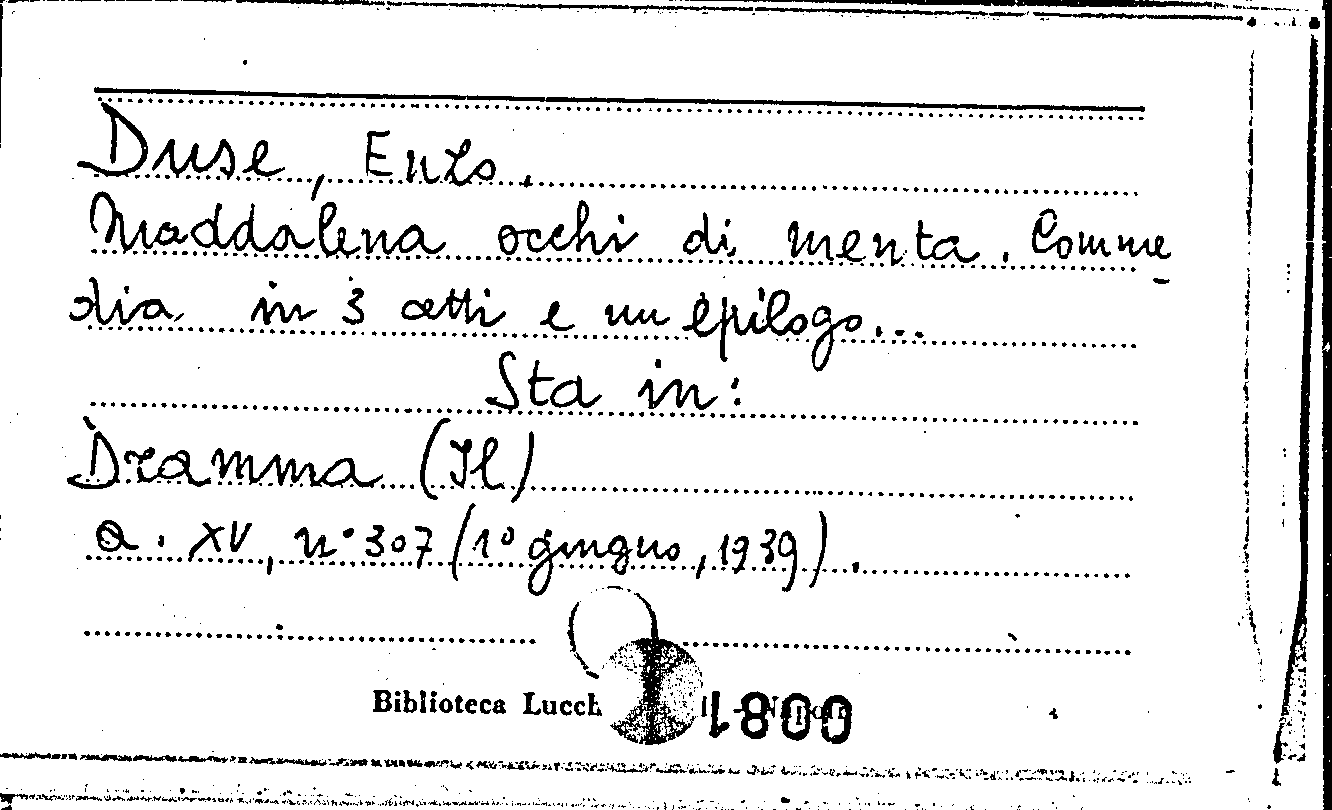 Duse, Enzo.
Maddalena occhi di menta. Comme-
dia in 3 atti e un epilogo...
Sta in:
Dramma (Il)
a. XV, n° 307 (1° giugno, 1939).
Biblioteca
0081